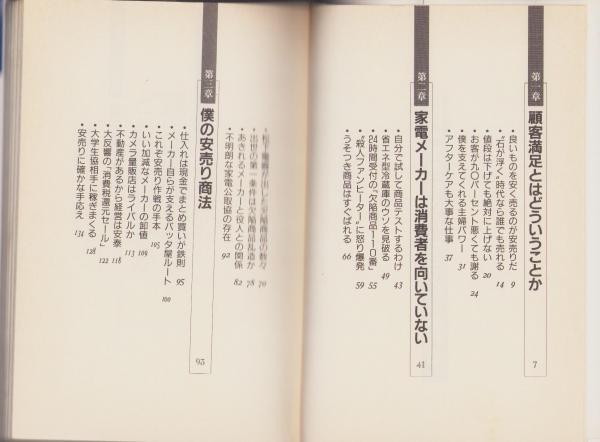 第一章 顧客満足とはどういうことか 7
・良いものを安く売るのが安売りだ 9
・“石が浮く”時代なら誰でも売れる 14
・値段は下げても絶対に上げない 20
・お客が九〇パーセント悪くても謝る 24
・僕を支えてくれる主婦パワー 31
・アフターケアも大事な仕事 37
第二章 家電メーカーは消費者を向いていない 41
・自分で試して商品テストするわけ 43
・省エネ型冷蔵庫のウソを見破る 49
・24時間受付の“欠陥商品110番” 55
・“殺人ファンヒーター”に怒り爆発 59
・うそつき商品はすぐばれる 66
商品の数々 70
・出世の第一条件は欠陥商品乱造か 78
・あきれるメーカーと役人との関係 82
・不明朗な家電公取協の存在 92
第三章 僕の安売り商法 93
・仕入れは現金でまとめ買いが鉄則 95
・メーカー自らが支えるバッタ屋ルート 100
・これぞ安売り作戦の手本 105
・いい加減なメーカーの卸値 109
・カメラ量販店はライバルか 113
・不動産があるから経営は安泰 118
・大反響の「消費税還元セール」 122
・大学生協相手に稼ぎまくる 128
・安売りに確かな手応え 134